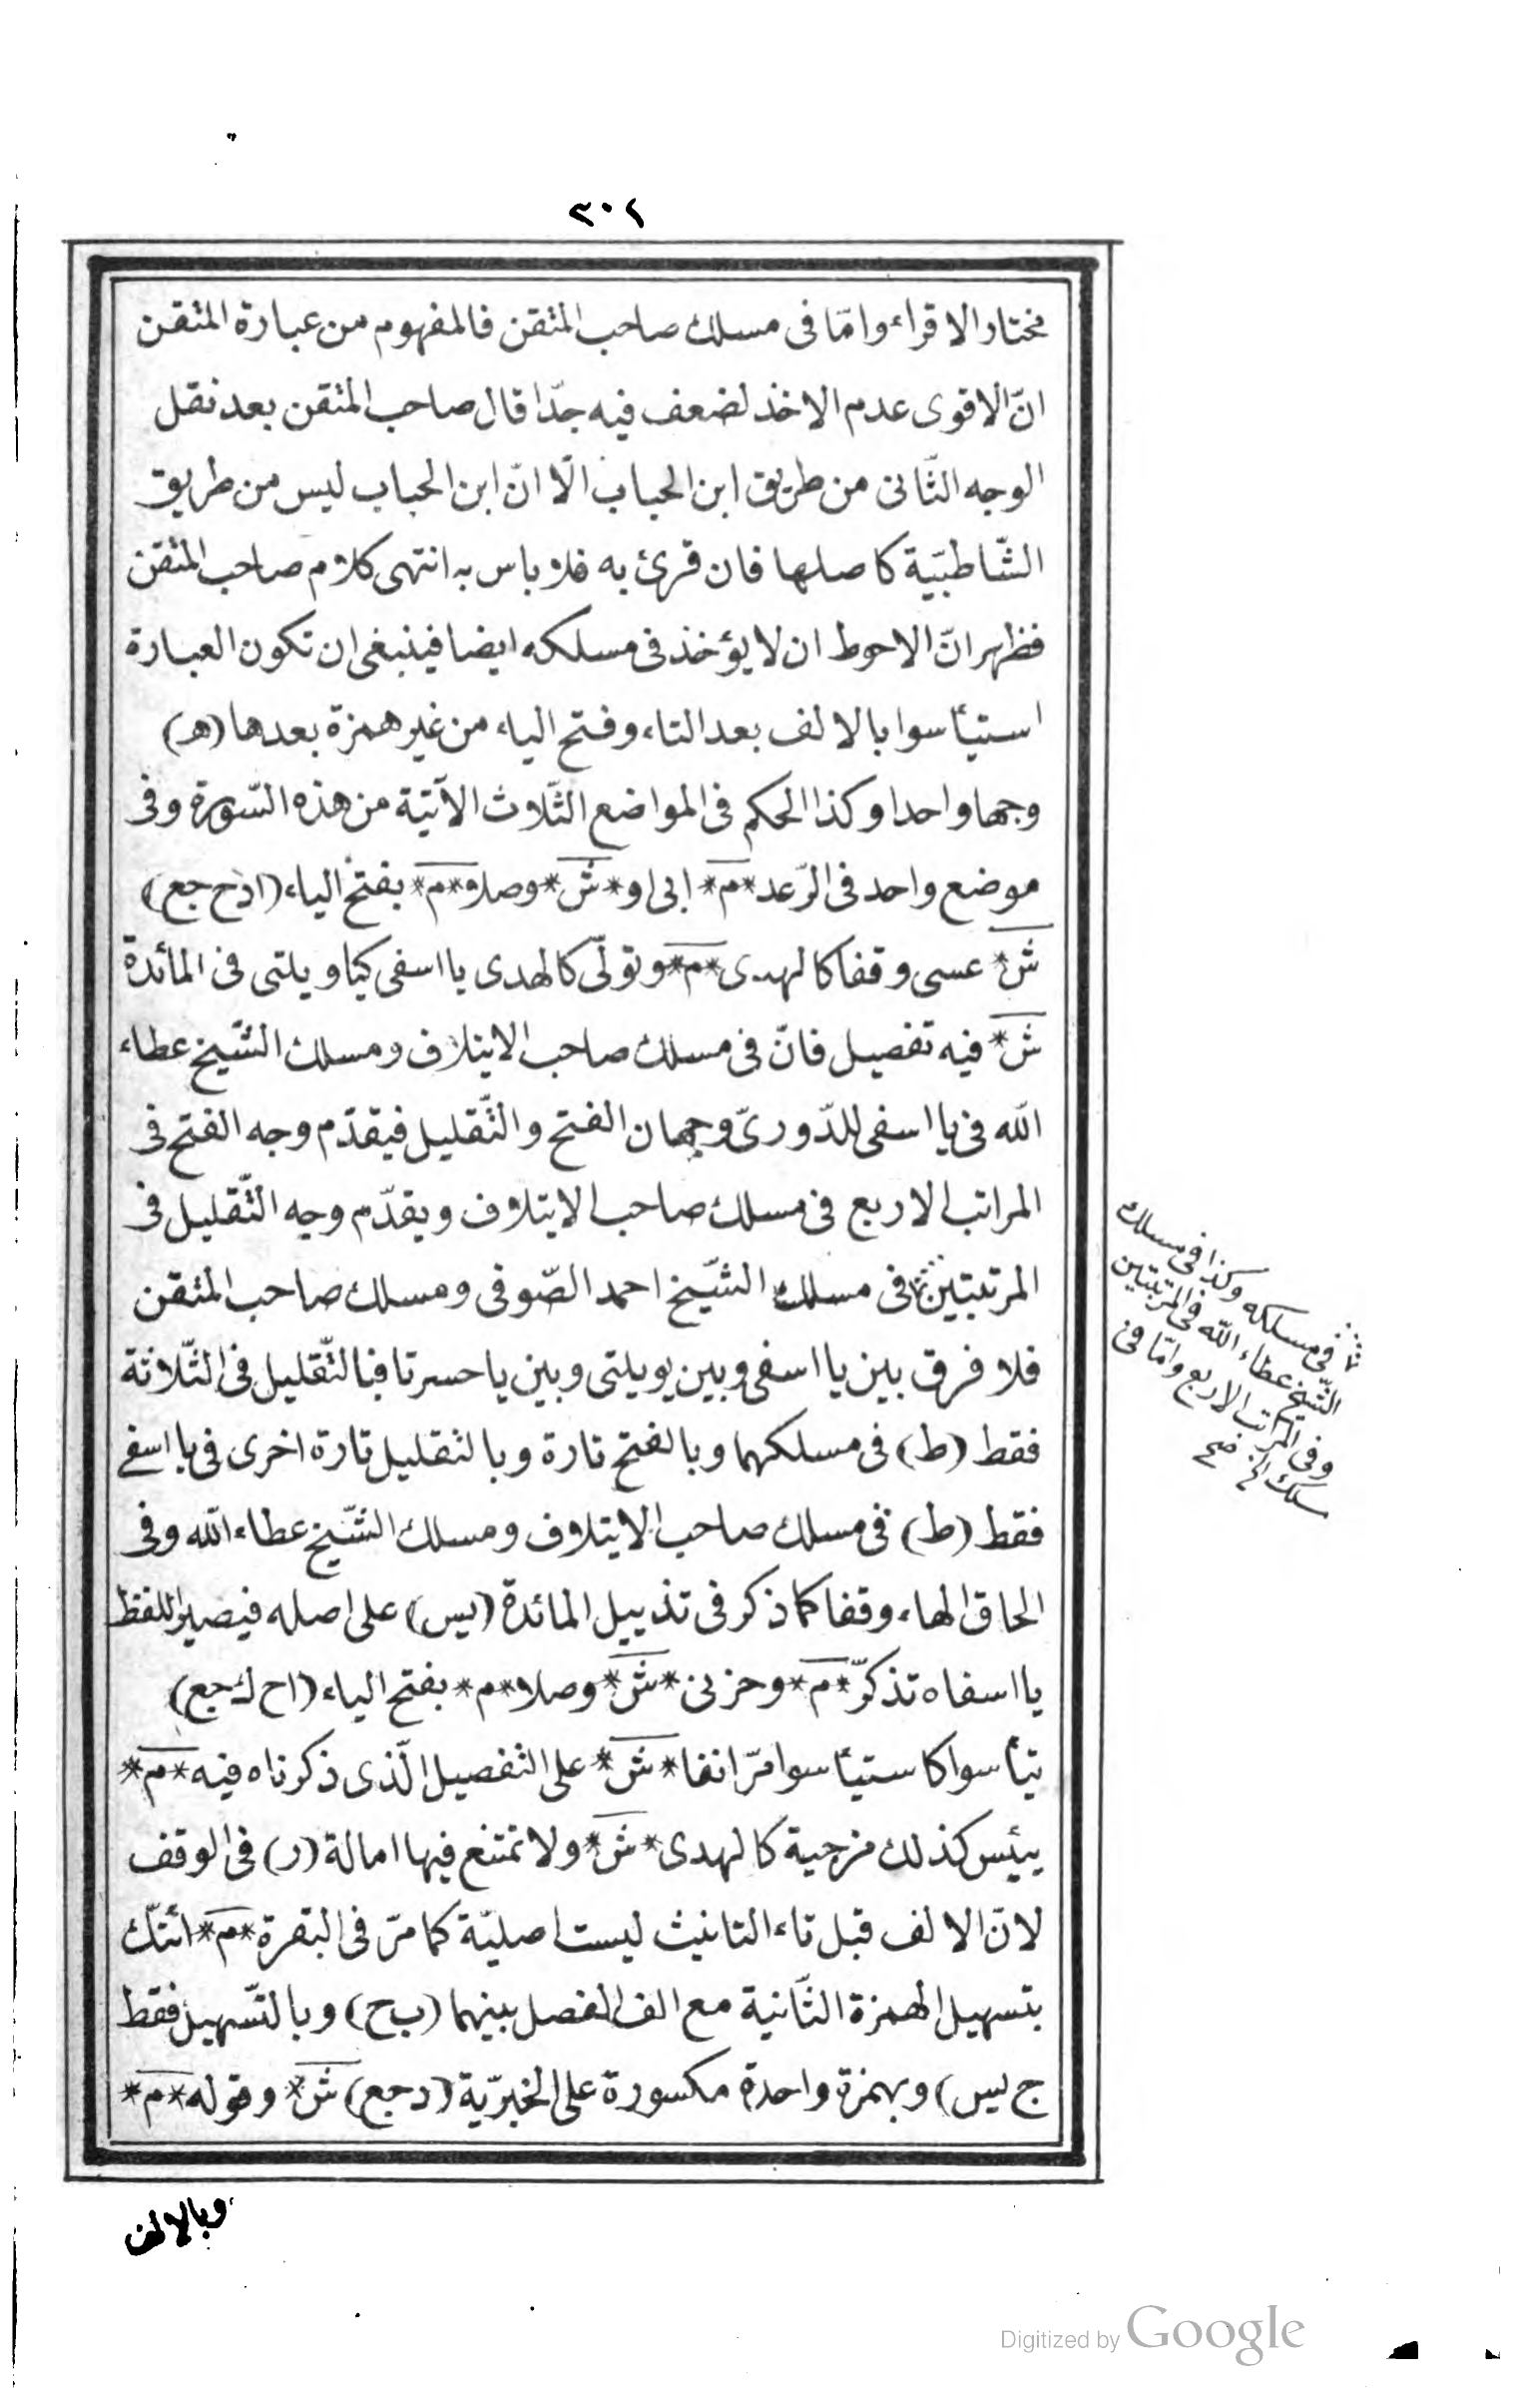 ٣٠٢
مختار الاقراء وامّا فى مسلك صاحب المتقن فالمفهوم من عبارة المتقن
انّ الاقوى عدم الاخذ لضعف فيه جدّا قال صاحب المتقن بعد نقل
الوجه الثّانى من طريق ابن الحباب الّا انّ ابن الحباب ليس من طريق
الشّاطبيّة كاصلها فان قرئ به فلا باس به انتهى كلام صاحب المتقن
فظهر انّ الاحوط ان لا يؤخذ فى مسلكه ايضا فينبغى ان تكون العبارة
استيأسوا بالالف بعد التاء وفتح الياء من غير همزة بعدها (هـ)
وجها واحدا وكذا الحكم فى المواضع الثّلاث الآتية من هذه السّورة وفى
موضع واحد فى الرّعد *م* ابى او *ش* وصلا *م* بفتح الياء (اد ح جع)
ش* عسى وقفا كالهدى *م* وتولّى كالهدى يا اسفى كيا ويلتى فى المائدة
ش* فيه تفصيل فانّ فى مسلك صاحب الايتلاف ومسلك الشّيخ عطاء
الله فى يا اسفى للدّورىّ وجهان الفتح والتّقليل فيقدّم وجه الفتح فى
المراتب الاربع فى مسلك صاحب الايتلاف ويقدّم وجه التّقليل فى
المرتبتين فى مسلك الشّيخ احمد الصّوفى ومسلك صاحب المتقن
فلا فرق بين يا اسفى وبين يويلتى وبين يا حسرتا فبالتّقليل فى الثّلاثة
فقط (ط) فى مسلكهما وبالفتح تارة وبالتقليل تارة اخرى فى يا اسفى
فقط (ط) فى مسلك صاحب الايتلاف ومسلك الشّيخ عطاء الله وفى
الحاق الهاء وقفا كما ذكر فى تذييل المائدة (يس) على اصله فيصير اللفظ
يا اسفاه تذكّر *م* وحزنى *ش* وصلا *م* بفتح الياء (اح ك جع)
تيأسوا كاستيأسوا مرّ انفا *ش* على التفصيل الّذى ذكرناه فيه *م*
ييئس كذلك مزجية كالهدى *ش* ولا تمتنع فيها امالة (ر) فى الوقف
لانّ الالف قبل تاء التانيث ليست اصليّة كما مرّ فى البقرة *م* ائنّك
بتسهيل الهمزة الثّانية مع الف الفصل بينهما (ب ح) وبالتّسهيل فقط
ج يس) وبهمزة واحدة مكسورة على الخبريّة (د جع) ش* وقوله *م*
فى مسلكه وكذا فى مسلك
الشّيخ عطاء الله فى المرتبتين
وفى المراتب الاربع وامّا فى
مسلك الخ صح
وبالالف
Digitized by Google